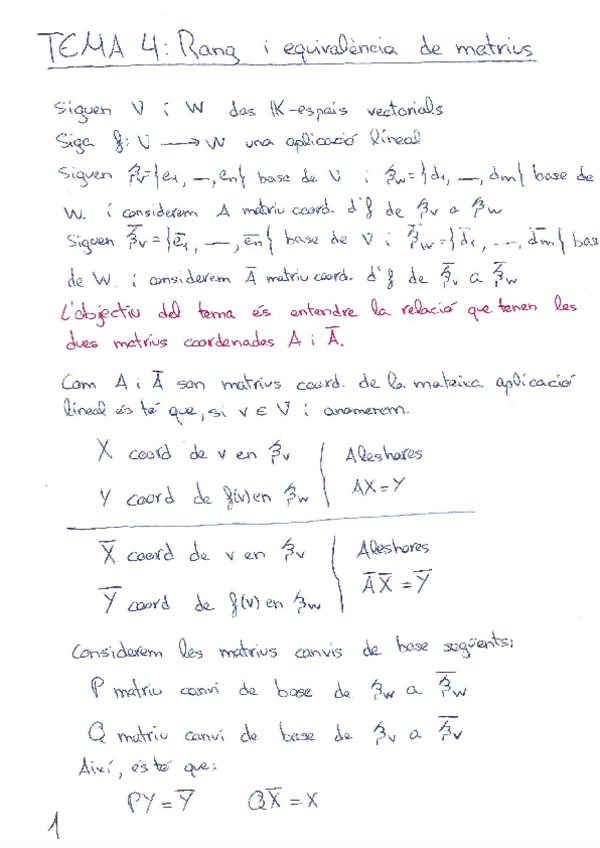 TEMA 4: Rang i equivalència de matrius
Siguen V i W dos K-espais vectorials
Siga f: V → W una aplicació lineal
Siguen β_V={e₁, —, en} base de V i β_W={d₁, —, dm} base de
W. i considerem A matriu coord. d'f de β_V a β_W
Siguen β̅_V={e̅₁, —, e̅n} base de V i β̅_W={d̅₁, ---, d̅m} bas
de W. i considerem A̅ matriu coord. d'f de β̅_V a β̅_W
L'objectiu del tema és entendre la relació que tenen les
dues matrius coordenades A i A̅.
Com A i A̅ son matrius coord. de la mateixa aplicació
lineal és té que, si v ∈ V i anomerem.
X coord de v en β_V | Aleshores
Y coord de f(v) en β_W | AX=Y
X̅ coord de v en β_V | Aleshores
Y̅ coord de f(v) en β_W | A̅X̅=Y̅
Considerem les matrius canvis de base següents:
P matriu canvi de base de β_W a β̅_W
Q matriu canvi de base de β_V a β̅_V
Així, és té que:
PY=Y̅ QX̅=X
1